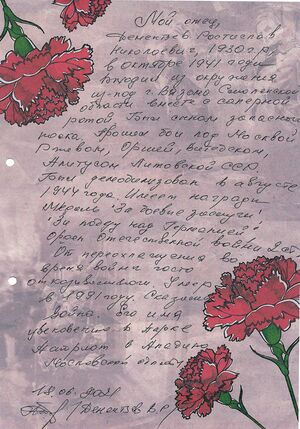 Мой отец,
Дементьев Ростислав
Николаевич, 1930 г.р.
в Октябре 1941 года
выходил из окружения
из-под г. Вязьмы Смоленской
области вместе с саперной
ротой. Был сыном запасного
полка. Прошел бои под Москвой
Ржевом, Оршей, Витебском,
Алитусом Литовской ССР.
Был демобилизован в августе
1944 года. Имеет награды:
Медаль "За боевые заслуги",
"За победу над Германией",
Орден Отечественной войны 2 ст.
От переохлаждения во
время войны часто
отхаркивал. Умер
в 1981 году. Сказалась
война. Его имя
увековечено в парке
Патриот в
Московской области
18.06.2021
Дементьев В.Р.